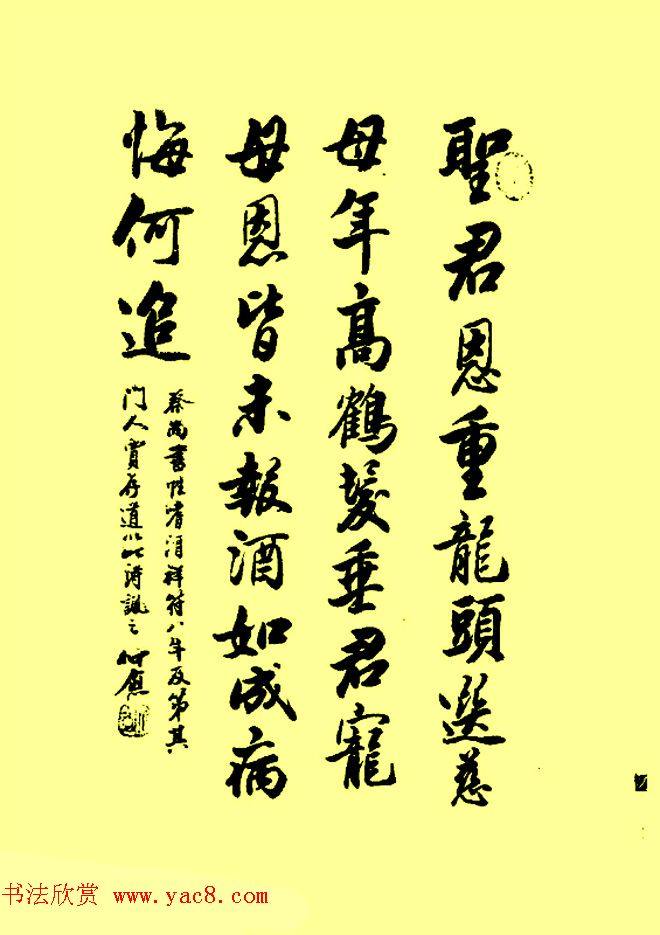 聖君恩重龍頭選慈
母年高鶴髮垂君寵
母恩皆未報酒如成病
悔何追
蔡尚書性嗜酒祥符八年及第其
門人賈存道以此詩諷之
书法欣赏 www.yac8.com